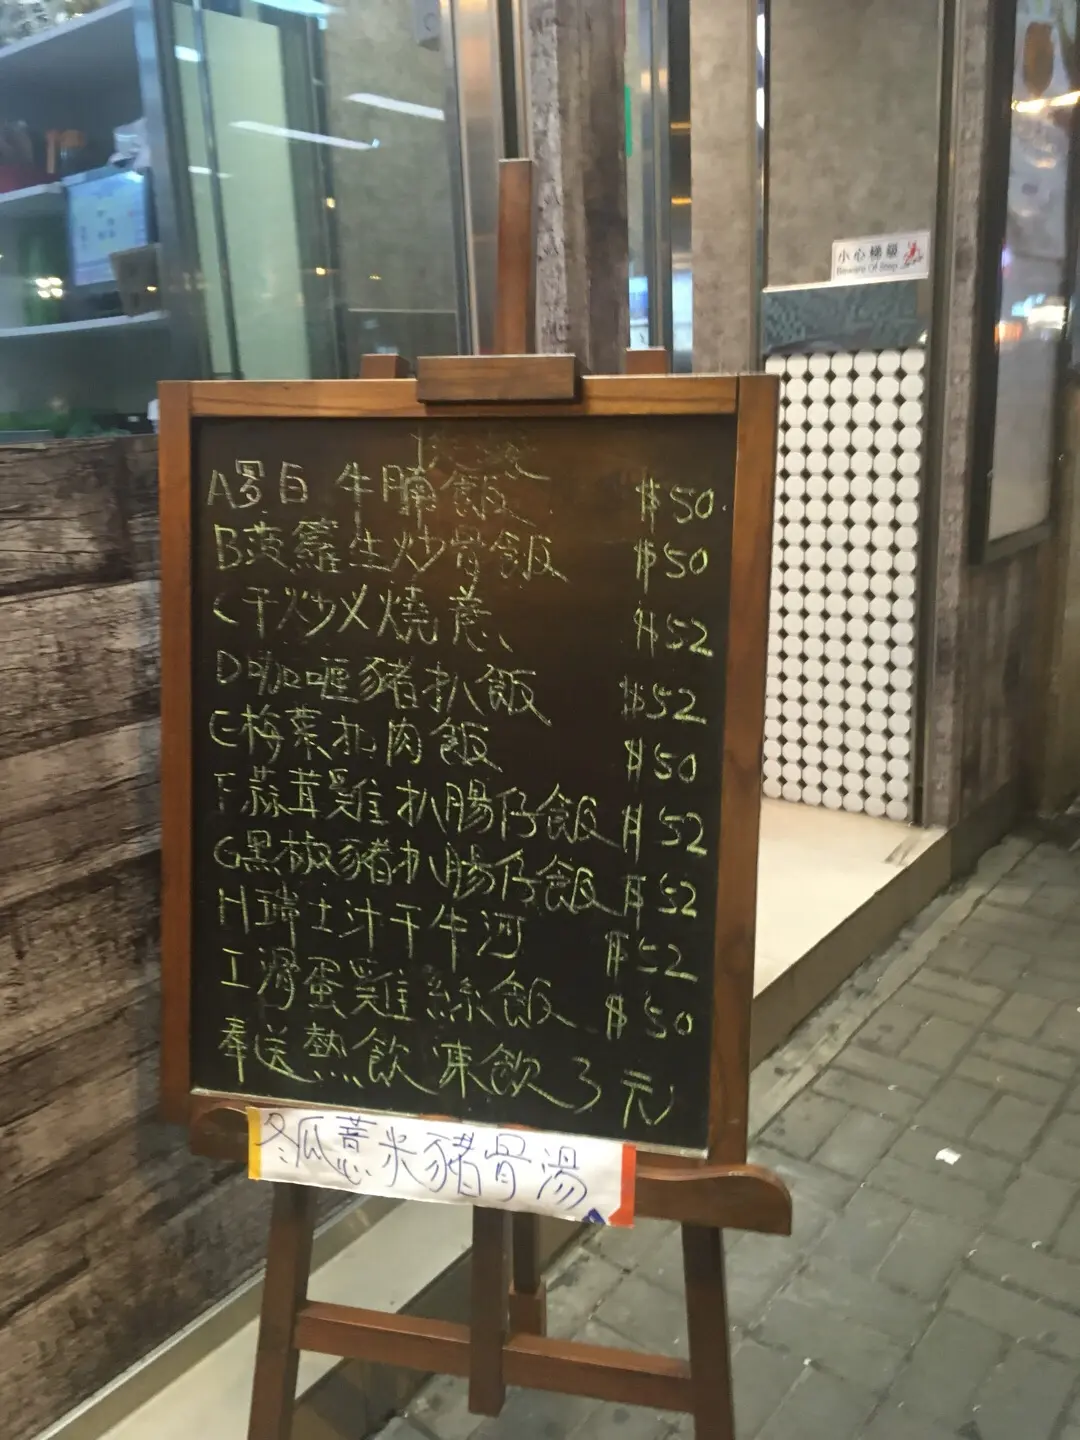 小心梯級
Beware Of Step
晚餐
A 蘿白牛腩飯 $50
B 菠蘿生炒骨飯 $50
C 干炒乂燒意 $52
D 咖喱豬扒飯 $52
E 梅菜扣肉飯 $50
F 蒜茸雞扒腸仔飯 $52
G 黑椒豬扒腸仔飯 $52
H 瑞士汁干牛河 $52
I 滑蛋雞絲飯 $50
奉送熱飲 凍飲3元
冬瓜薏米豬骨湯